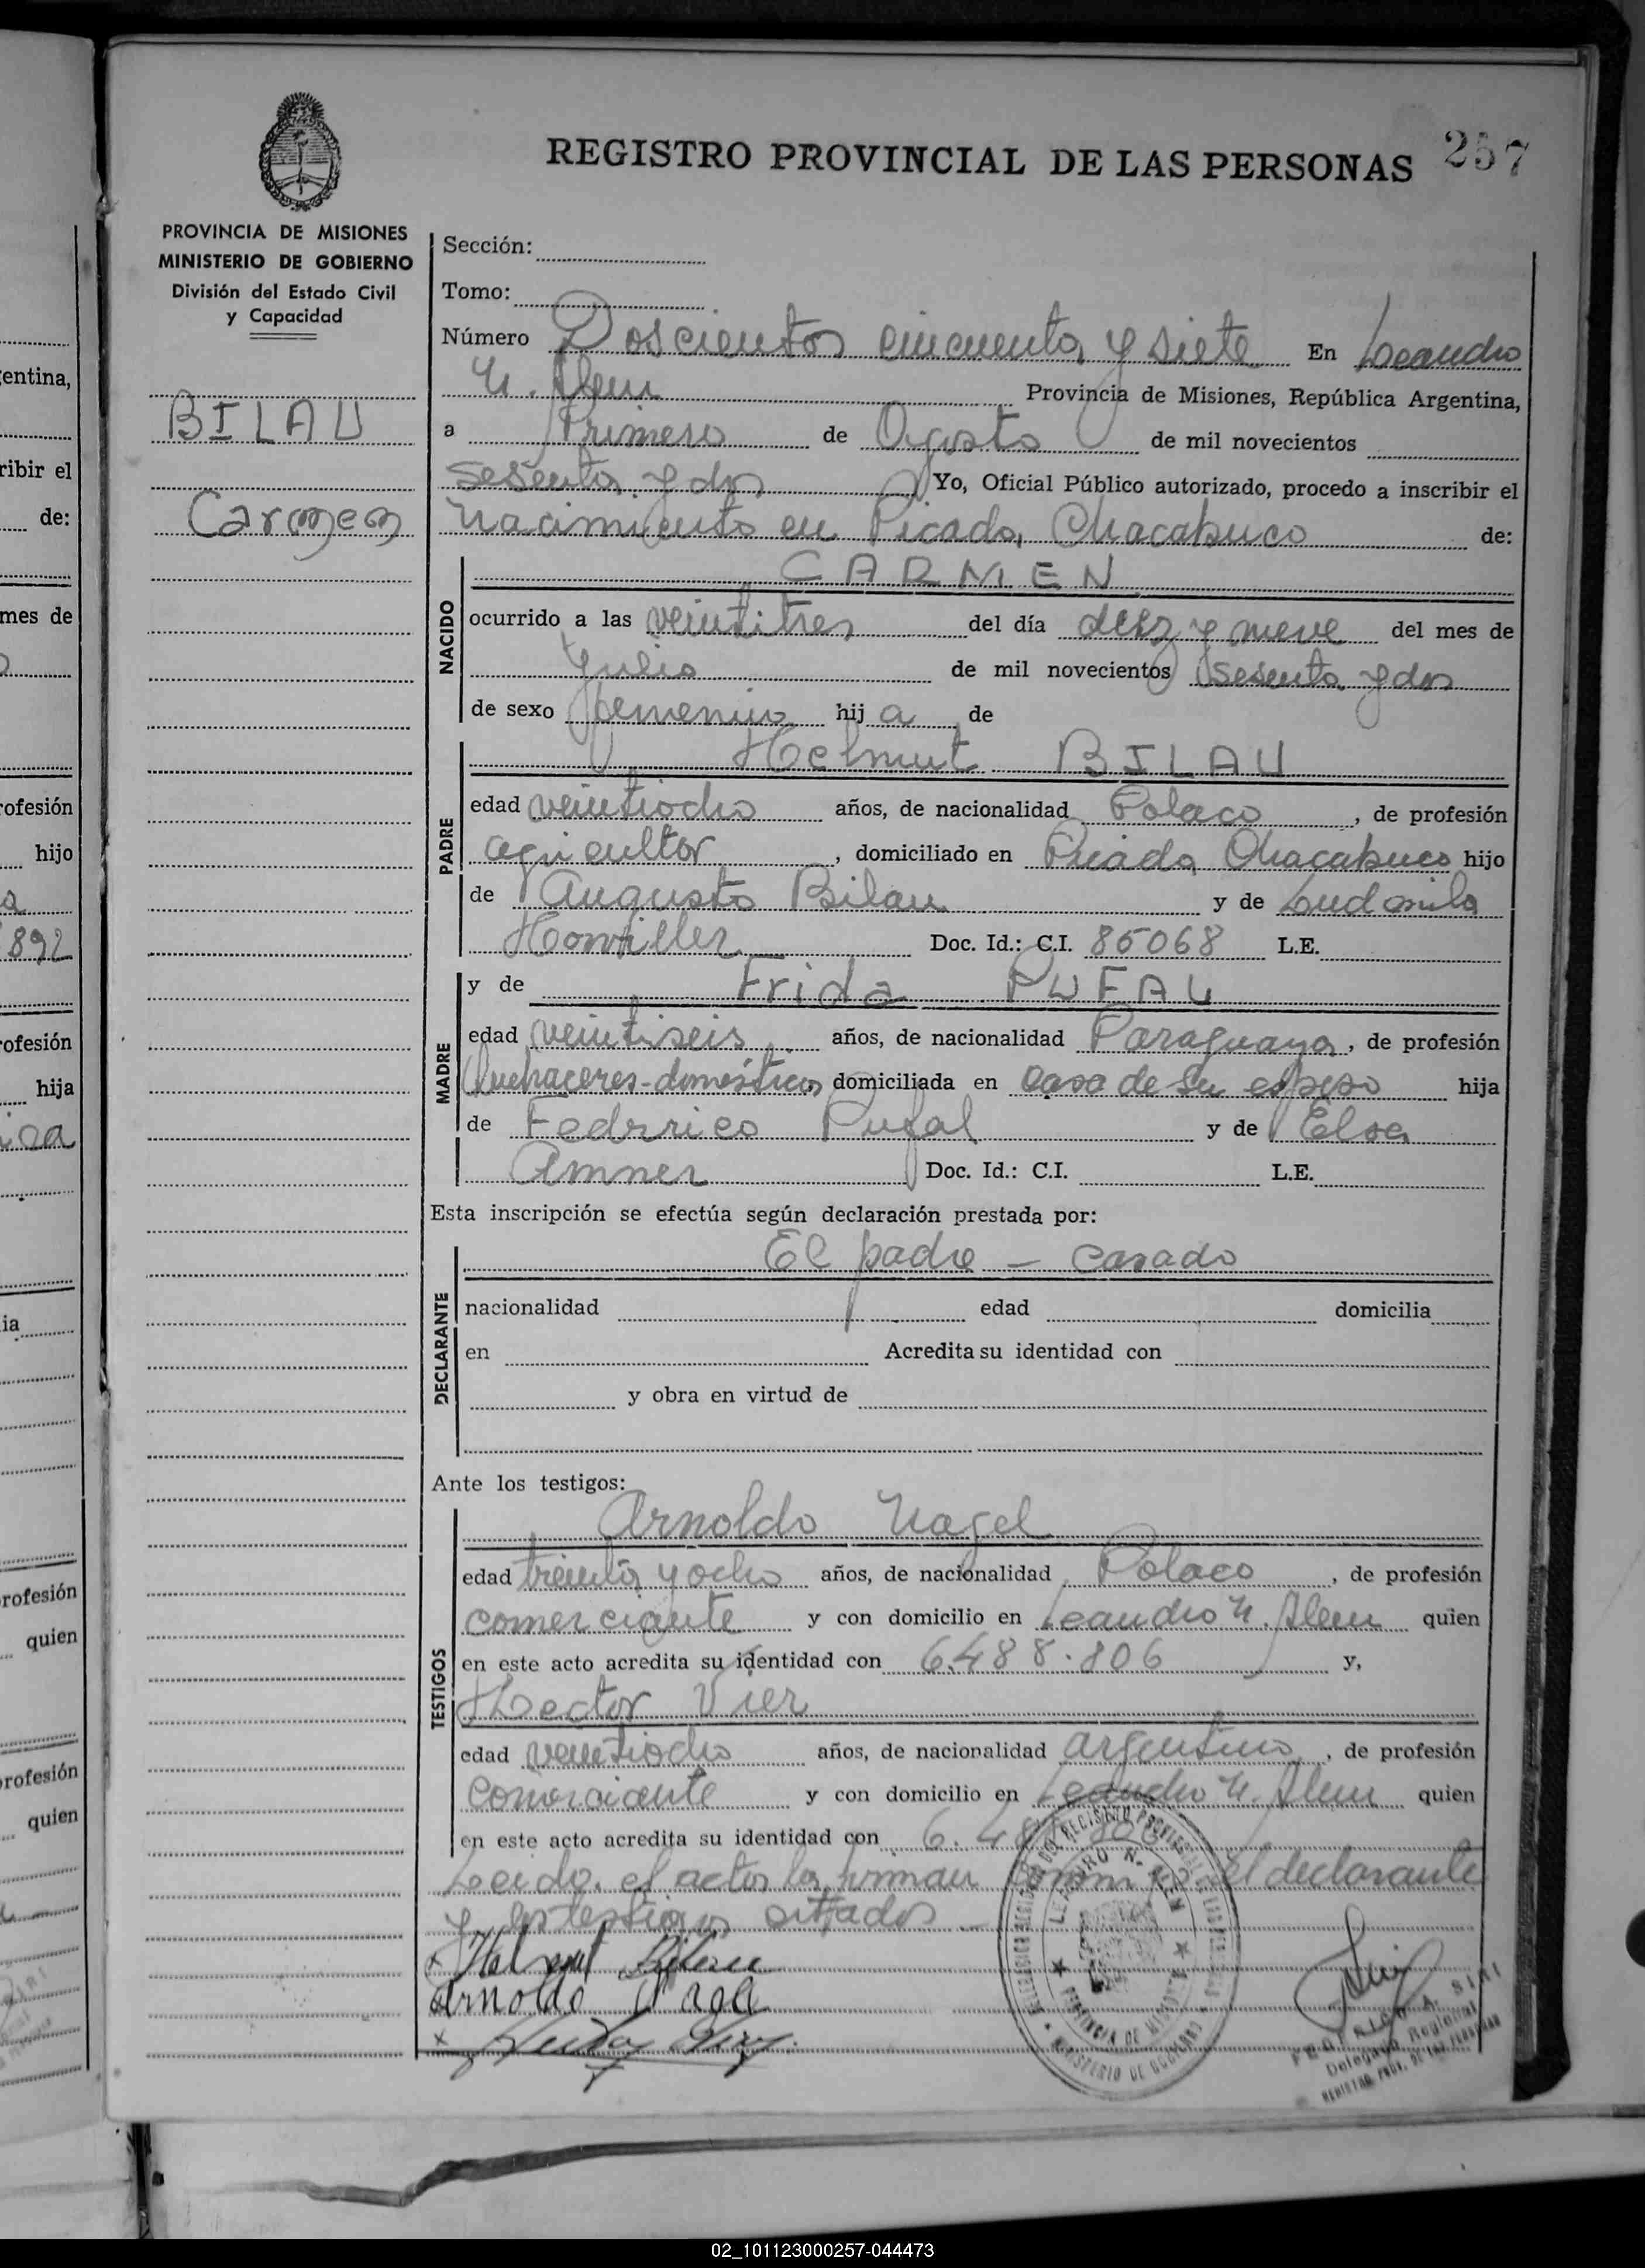 REGISTRO PROVINCIAL DE LAS PERSONAS 257
PROVINCIA DE MISIONES
MINISTERIO DE GOBIERNO
División del Estado Civil
y Capacidad
BILAU
Carmen
Sección:
Tomo:
Número Doscientos cincuenta y siete En Leandro
N. Alem Provincia de Misiones, República Argentina,
a Primero de Agosto de mil novecientos
sesenta y dos Yo, Oficial Público autorizado, procedo a inscribir el
nacimiento en Picada Chacabuco de:
NACIDO
CARMEN
ocurrido a las veintitres del día diez y nueve del mes de
Julio de mil novecientos sesenta y dos
de sexo femenino hij a de
PADRE
Helmut BILAU
edad veintiocho años, de nacionalidad Polaco, de profesión
agricultor, domiciliado en Picada Chacabuco hijo
de Augusto Bilau y de Ludmila
Doc. Id.: C.I. 85068 L.E.
MADRE
y de Frida PUFAL
edad veintiseis años, de nacionalidad Paraguaya, de profesión
Quehaceres-domésticos domiciliada en casa de su esposo hija
de Federico Pufal y de Elsa
Amner Doc. Id.: C.I. L.E.
Esta inscripción se efectúa según declaración prestada por:
DECLARANTE
El padre - casado
nacionalidad edad domicilia
en Acredita su identidad con
y obra en virtud de
Ante los testigos:
TESTIGOS
Arnoldo Nagel
edad treinta y ocho años, de nacionalidad Polaco, de profesión
comerciante y con domicilio en Leandro N. Alem quien
en este acto acredita su identidad con 6.488.806 y,
Hector Vier
edad veintiocho años, de nacionalidad argentino, de profesión
comerciante y con domicilio en Leandro N. Alem quien
en este acto acredita su identidad con
Leida el acta la firman el declarante
y los testigos citados
Helmut Bilau
Arnoldo Nagel
LEANDRO N. ALEM
PROVINCIA DE MISIONES
MINISTERIO DE GOBIERNO
FEDERICO A. SIRI
Delegado Regional
REGISTRO PROV. DE LAS PERSONAS
entina,
ribir el
de:
mes de
rofesión
hijo
892
rofesión
hija
ia
rofesión
quien
rofesión
quien
02_101123000257-044473